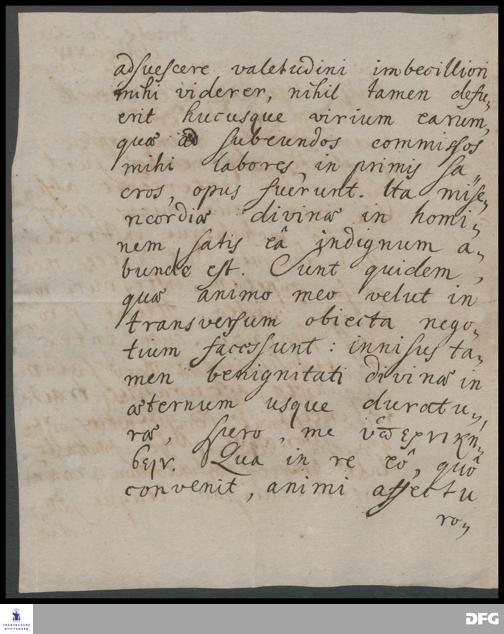 adsuescere valetudini imbecilliori
mihi viderer, nihil tamen defu„
erit hucusque virium earum,
quæ ad subeundos commissos
mihi labores, in primis sa„
cros opus fuerunt. Ita mise„
ricordiæ divinæ in homi„
nem, satis eâ indignum a„
bunde est. Sunt quidem,
quæ animo meo velut in
transversum obiecta nego„
tium facessunt: innisus ta„
men benignitati divinæ in
æternum usque duratu„
ræ, spero, me ὑπερνική„
σειν. Qua in re eô, quô
convenit, animi affectu
ro„
FRANCKESCHE
STIFTUNGEN
DFG